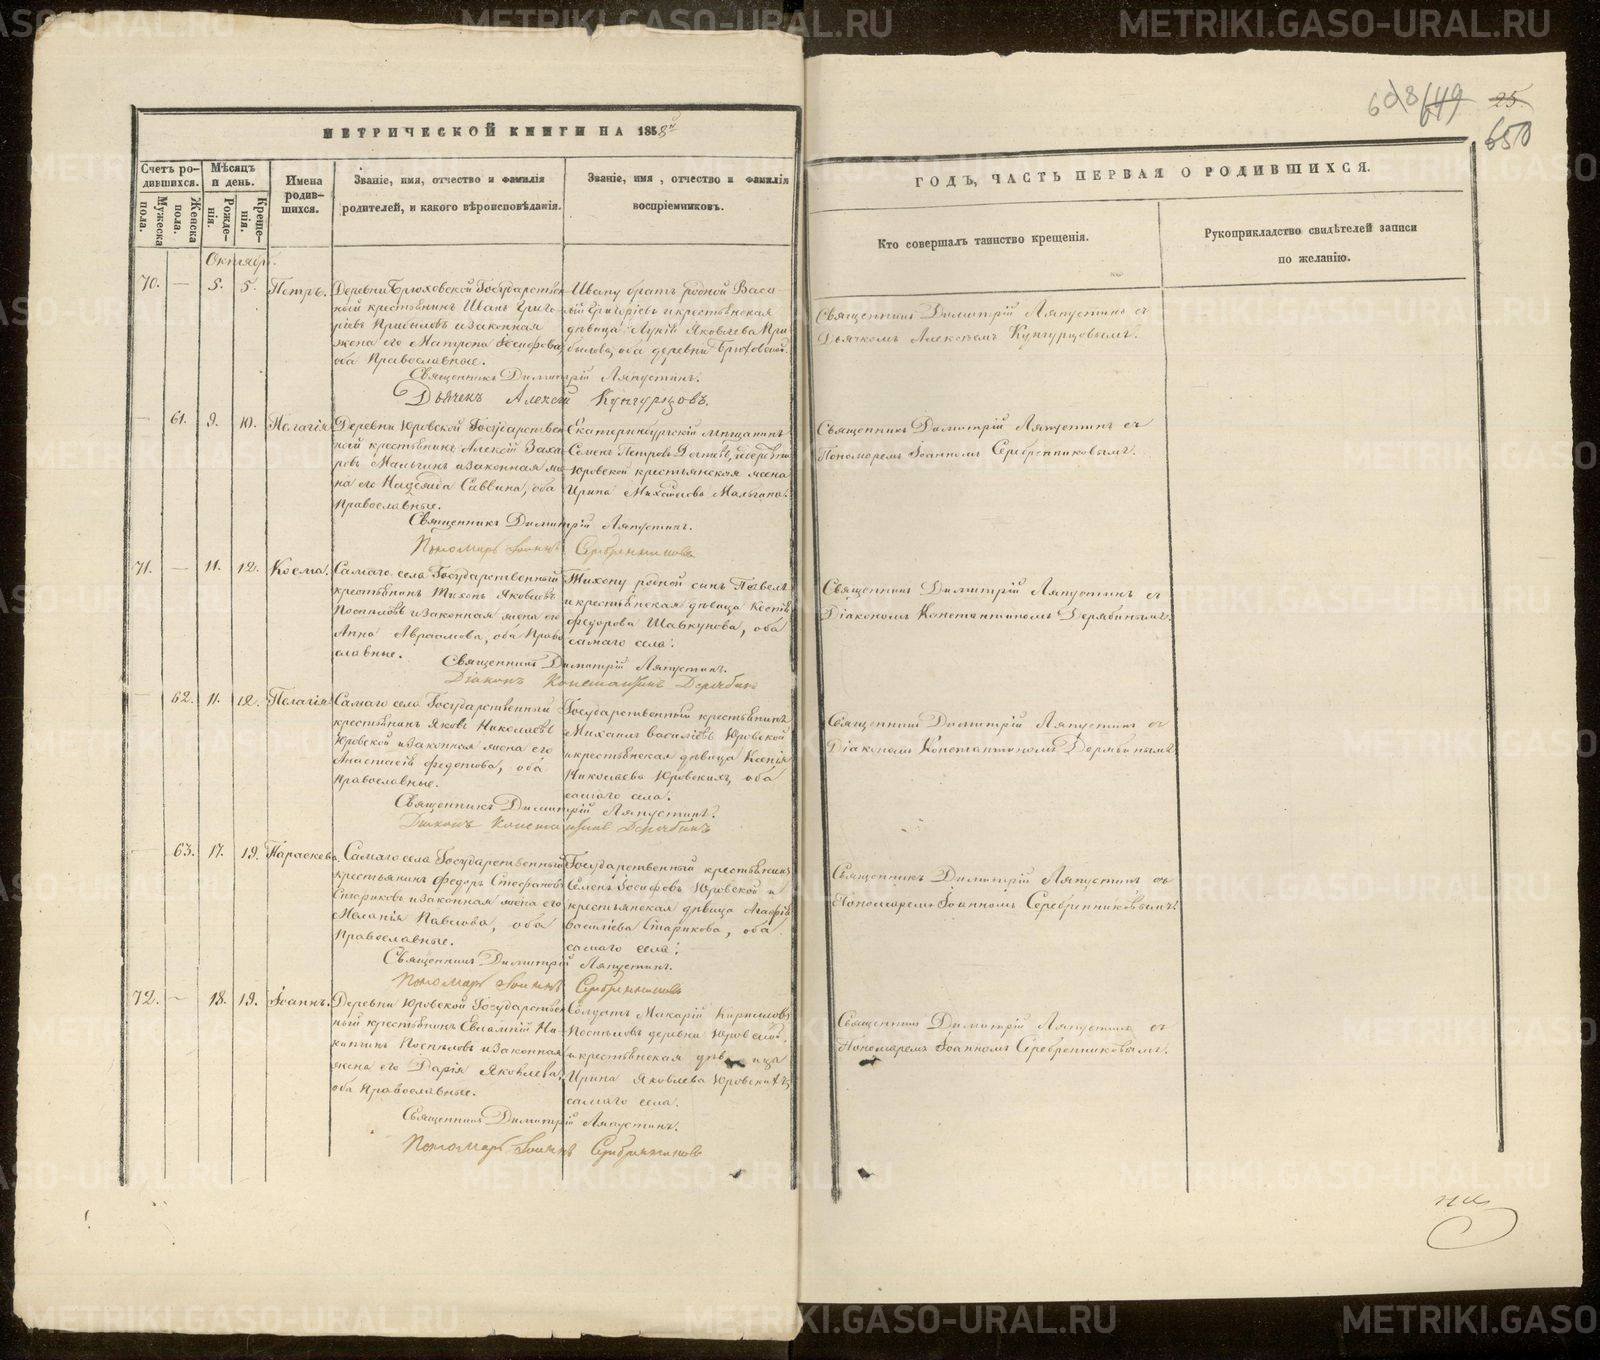 МЕТРИЧЕСКОЙ КНИГИ НА 1858й
Счетъ ро-
дившихся.
Мужеска
пола.
Женска
пола.
Мѣсяцъ
и день.
Рожде-
нія.
Креще-
нія.
Имена
родив-
шихся.
Званіе, имя, отчество и фамилія
родителей, и какого вѣроисповѣданія.
Званіе, имя, отчество и фамилія
воспріемниковъ.
Октябрь.
70. — 5. 5. Петръ.
Деревни Брюховской Государствен
ный крестьянинъ Иванъ Григо
рьевъ Прибыловъ и законная
жена его Матрона Іосифова
оба Православные.
Ивану братъ родной Васи
лій Григорьевъ и крестьянская
дѣвица Яковлева При
былова, оба деревни Брюховской.
Священникъ Димитрій Ляпустинъ.
Дьячекъ Алексей Кунгурцовъ.
— 61. 9. 10. Пелагія
Деревни Юровской Государствен
ный крестьянинъ Алексей Заха
ровъ Мальгинъ и законная же
на его Надежда Саввина, оба
Православные.
Екатеринбургскій мѣщанинъ
Семенъ Петровъ и деревни
Юровской крестьянская жена
Ирина Михайлова Мальгина.
Священникъ Димитрій Ляпустинъ.
Пономарь Іоаннъ Серебренниковъ
71. — 11. 12. Косма.
Самаго села Государственный
крестьянинъ Тихонъ Яковлевъ
Поспѣловъ и законная жена его
Анна Авраамова, оба Право
славные.
Тихону родной сынъ Павелъ
и крестьянская дѣвица
Федорова Шавкунова, оба
самаго села.
Священникъ Димитрій Ляпустинъ.
Діаконъ Константинъ Дерябинъ
— 62. 11. 12. Пелагія
Самаго села Государственный
крестьянинъ Яковъ Николаевъ
Юровской и законная жена его
Анастасія Федотова, оба
Православные.
Государственный крестьянинъ
Михаилъ Васильевъ Юровской
и крестьянская дѣвица Ксенія
Николаева Юровскихъ, оба
самаго села.
Священникъ Димитрій Ляпустинъ.
Діаконъ Константинъ Дерябинъ
— 63. 17. 19. Параскева.
Самаго села Государственный
крестьянинъ Федоръ Стефановъ
Стариковъ и законная жена его
Меланія Павлова, оба
Православные.
Государственный крестьянинъ
Семенъ Іосифовъ Юровской и
крестьянская дѣвица Агафія
Васильева Старикова, оба
самаго села.
Священникъ Димитрій Ляпустинъ.
Пономарь Іоаннъ Серебренниковъ
72. — 18. 19. Іоаннъ.
Деревни Юровской Государствен
ный крестьянинъ Евлампій Ни-
китинъ Поспѣловъ и законная
жена его Дарія Яковлева,
оба Православные.
Солдатъ Макарій Кириловъ
Поспѣловъ деревни Юровской,
и крестьянская дѣвица
Ирина Яковлева Юровскихъ
самаго села.
Священникъ Димитрій Ляпустинъ.
Пономарь Іоаннъ Серебренниковъ
25
650
ГОДЪ, ЧАСТЬ ПЕРВАЯ О РОДИВШИХСЯ.
Кто совершалъ таинство крещенія.
Рукоприкладство свидѣтелей записи
по желанію.
Священникъ Димитрій Ляпустинъ съ
Дьячкомъ Алексѣемъ Кунгурцовымъ.
Священникъ Димитрій Ляпустинъ съ
Пономаремъ Іоанномъ Серебренниковымъ.
Священникъ Димитрій Ляпустинъ съ
Діакономъ Константиномъ Дерябинымъ.
Священникъ Димитрій Ляпустинъ съ
Діакономъ Константиномъ Дерябинымъ
Священникъ Димитрій Ляпустинъ съ
Пономаремъ Іоанномъ Серебренниковымъ.
Священникъ Димитрій Ляпустинъ съ
Пономаремъ Іоанномъ Серебренниковымъ.
METRIKI.GASO-URAL.RU